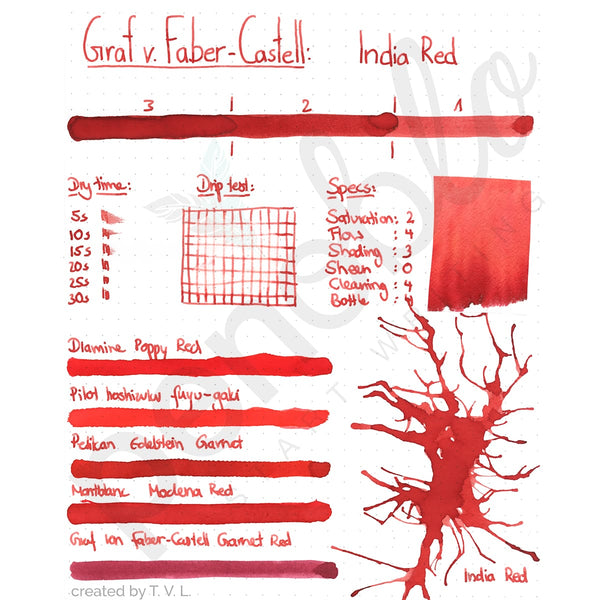 Graf v. Faber-Castell: India Red
3 2 1
Dry time: Drip test: Specs:
5s
10s
15s
20s
25s
30s
Saturation: 2
Flow : 4
Shading : 3
Sheen : 0
Cleaning : 4
Bottle : 4
Diamine Poppy Red
Pilot Iroshizuku fuyu-gaki
Pelikan Edelstein Garnet
Montblanc Modena Red
Graf von Faber-Castell Garnet Red
India Red
created by T. V. L.